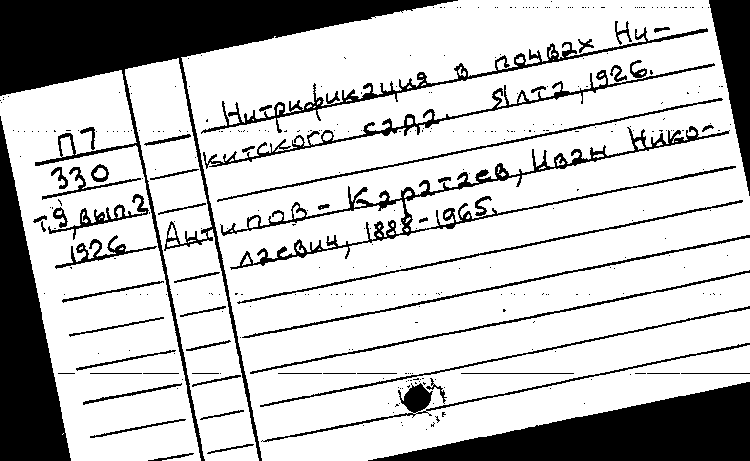 Нитрификация в почвах Ни-
китского сада. Ялта, 1926.
П7
330
т.9, вып.2
1926
Антипов - Каратаев, Иван Нико-
лаевич, 1888-1965.